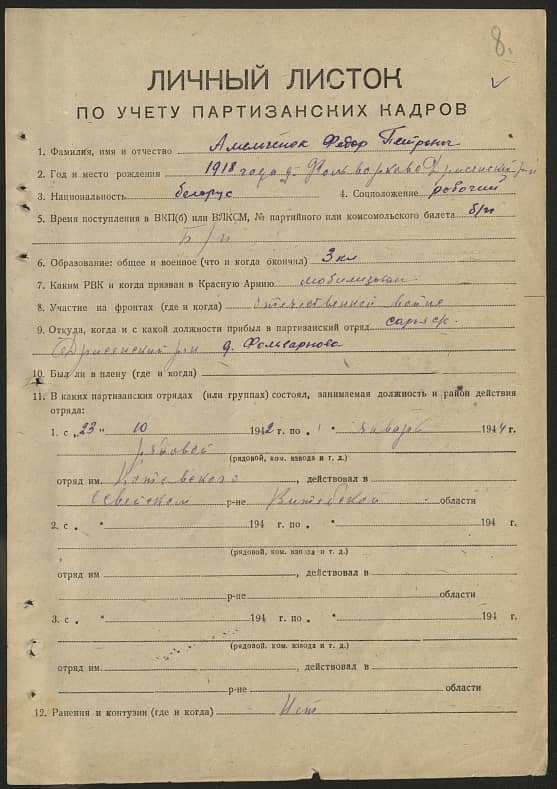 8.
ЛИЧНЫЙ ЛИСТОК
ПО УЧЕТУ ПАРТИЗАНСКИХ КАДРОВ
1. Фамилия, имя и отчество Амельченок Федор Петрович
2. Год и место рождения 1918 года д. Фольварково Дрисенский р-н
3. Национальность белорус 4. Соцположение рабочий
5. Время поступления в ВКП(б) или ВЛКСМ, № партийного или комсомольского билета б/п
Б/п
6. Образование: общее и военное (что и когда окончил) 3 кл
7. Каким РВК и когда призван в Красную Армию мобилизован
8. Участие на фронтах (где и когда) Отечественной войне
9. Откуда, когда и с какой должности прибыл в партизанский отряд сарья с/с
Дрисенский р/н д.
10. Был ли в плену (где и когда)
11. В каких партизанских отрядах (или группах) состоял, занимаемая должность и район действия
отряда:
1. с „23" 10 1942 г. по „1" января 1944 г.
рядовой
(рядовой, ком. взвода и т. д.)
отряд им Котовского, действовал в
Освейском р-не Витебской области
2. с „ " 194 г. по „ " 194 г.
(рядовой, ком. взвода и т. д.)
отряд им , действовал в
р-не области
3. с „ " 194 г. по „ " 194 г.
(рядовой, ком. взвода и т. д.)
отряд им. , действовал в
р-не области
12. Ранения и контузии (где и когда) Нет